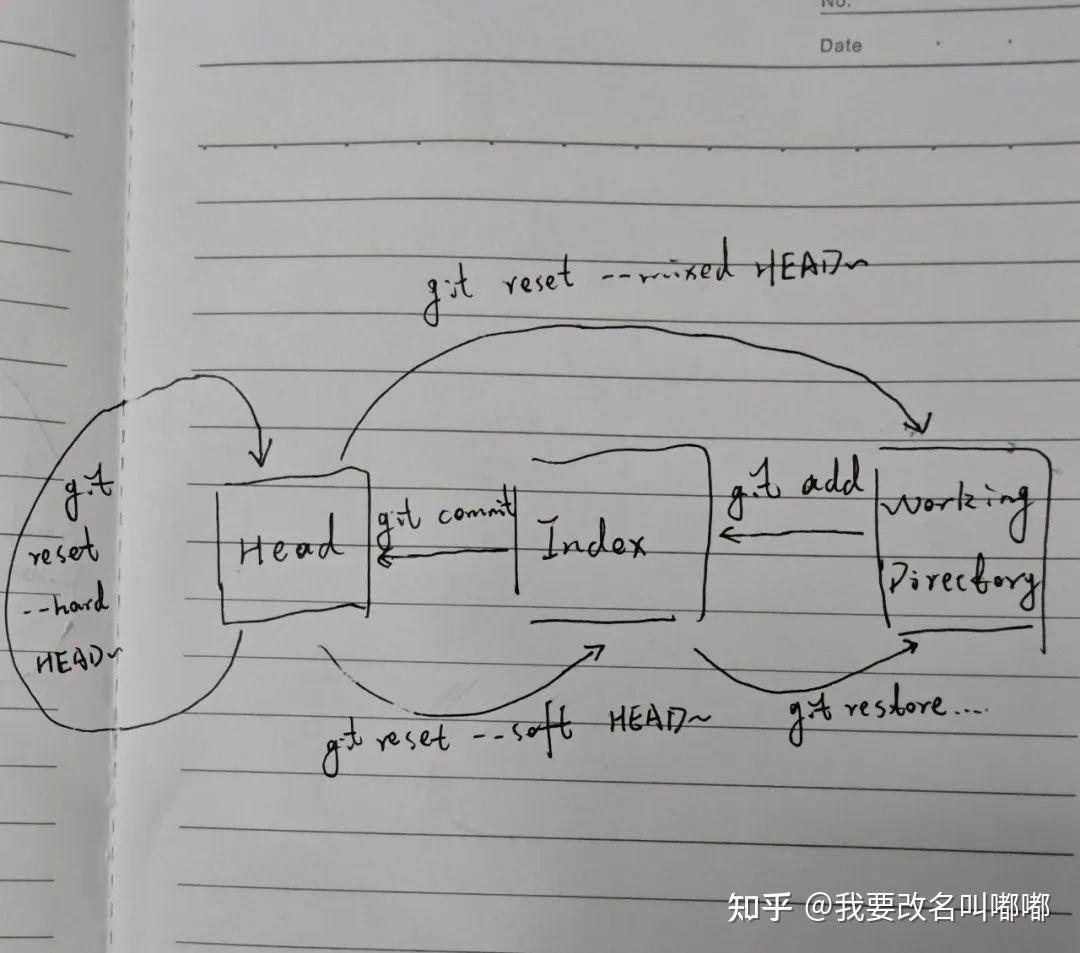 No.
Date
git reset --mixed HEAD~
git
reset
--hard
HEAD~
Head
git commit
Index
git add
Working
Directory
git reset --soft HEAD~
git restore....
知乎 @我要改名叫嘟嘟